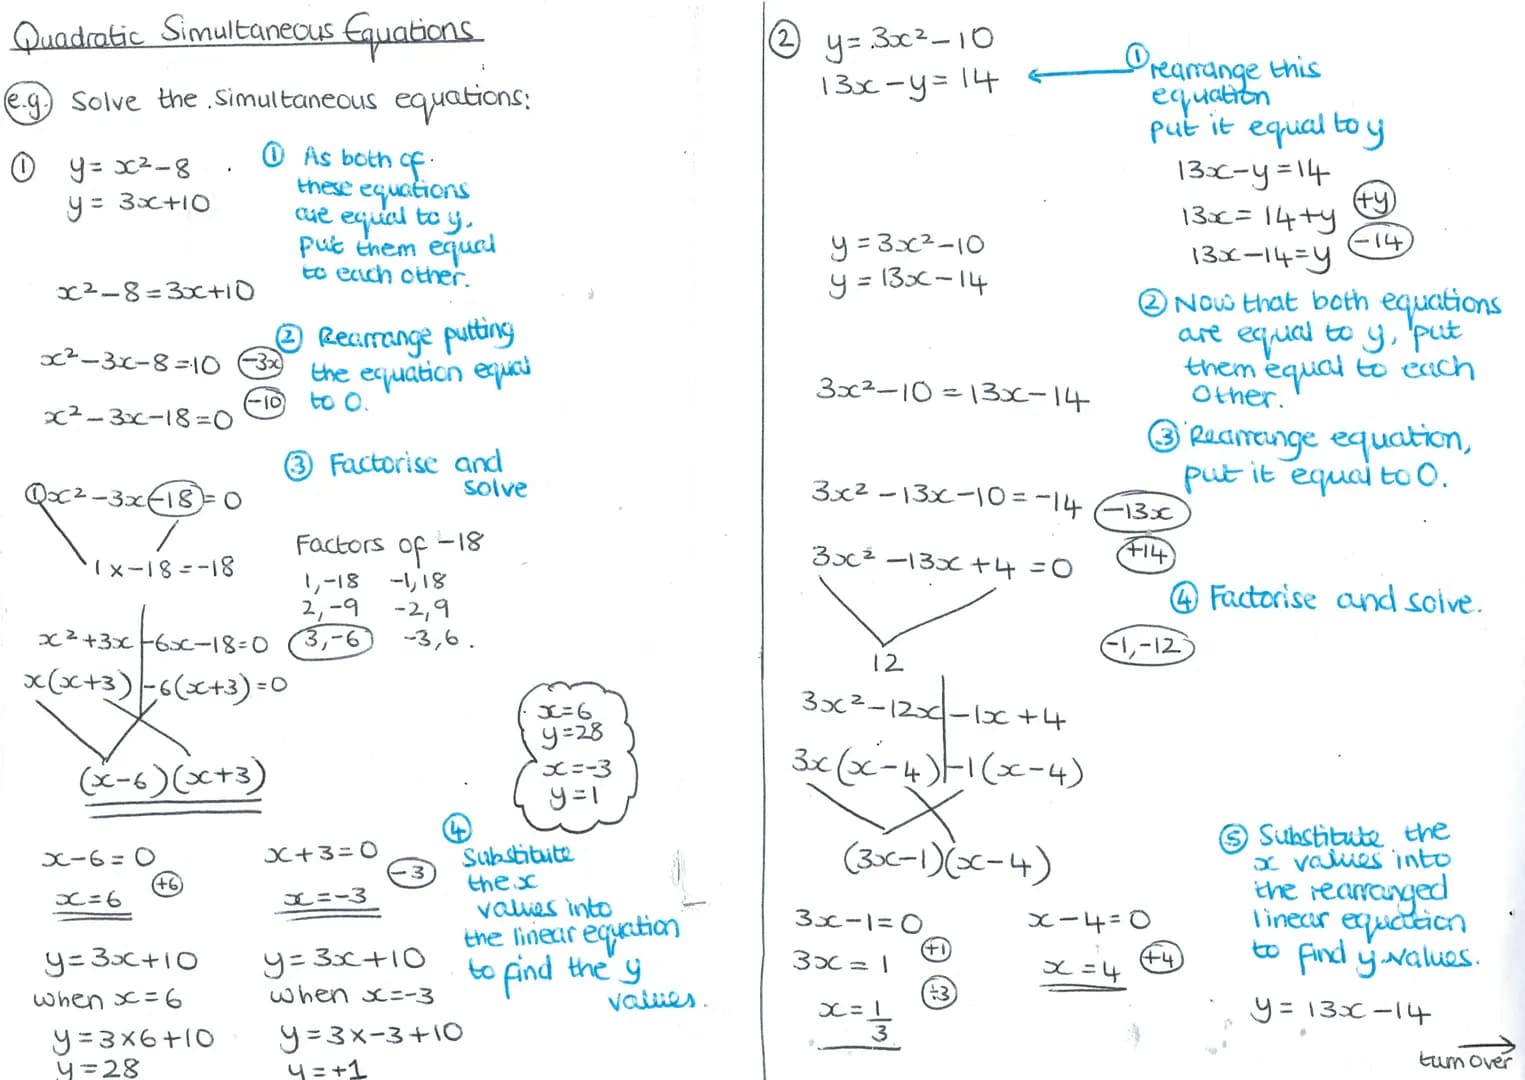 Quadratic Simultaneous Equations
e.g. Solve the simultaneous equations:
① y = x² - 8
y = 3x+10
① As both of
these equations
are equal to y,
put them equal
to each other.
x² - 8 = 3x+10
② Rearrange putting
the equation equal
to 0.
x² - 3x - 8 = 10 -3x
x² - 3x - 18 = 0 -10
③ Factorise and
solve
1x² - 3x -18 = 0
1 x -18 = -18
Factors of -18
1,-18 -1,18
2,-9 -2,9
3,-6 -3,6.
x² + 3x -6x - 18 = 0
x(x+3) -6(x+3) = 0
(x-6)(x+3)
x=6
y=28
x=-3
y=1
x-6=0 +6
x=6
x+3=0 -3
x=-3
④
Substitute
the x
values into
the linear equation
to find the y
values.
y = 3x+10
when x = 6
y = 3x6+10
y = 28
y = 3x+10
when x=-3
y = 3x-3+10
y = +1
② y = 3x² - 10
13x - y = 14
① rearrange this
equation
put it equal to y
13x - y = 14
13x = 14+y +y
13x - 14 = y -14
y = 3x² - 10
y = 13x - 14
② Now that both equations
are equal to y, put
them equal to each
other.
3x² - 10 = 13x - 14
③ Rearrange equation,
put it equal to 0.
3x² - 13x - 10 = -14 -13x
3x² - 13x + 4 = 0 +14
④ Factorise and solve.
12
-1,-12
3x² - 12x - 1x + 4
3x(x-4) -1(x-4)
(3x-1)(x-4)
3x-1=0 +1
3x = 1 ÷3
x = 1/3
x-4=0
x=4 +4
⑤ Substitute the
x values into
the rearranged
linear equation
to find y values.
y = 13x - 14
turn over